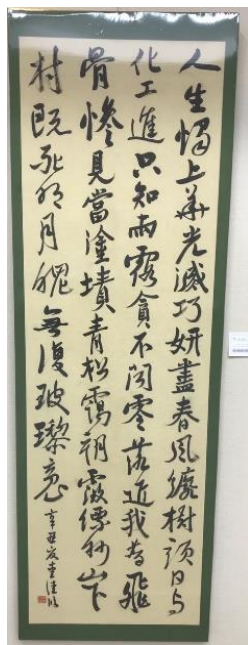 人生燭上華光滅巧妍盡春風繞樹頭日与
化工進只知雨露貪不聞零落近我昔飛
骨慘見當塗墳青松靄朝霞縹緲山下
村既死明月魄無復玻瓈魂
辛丑夏